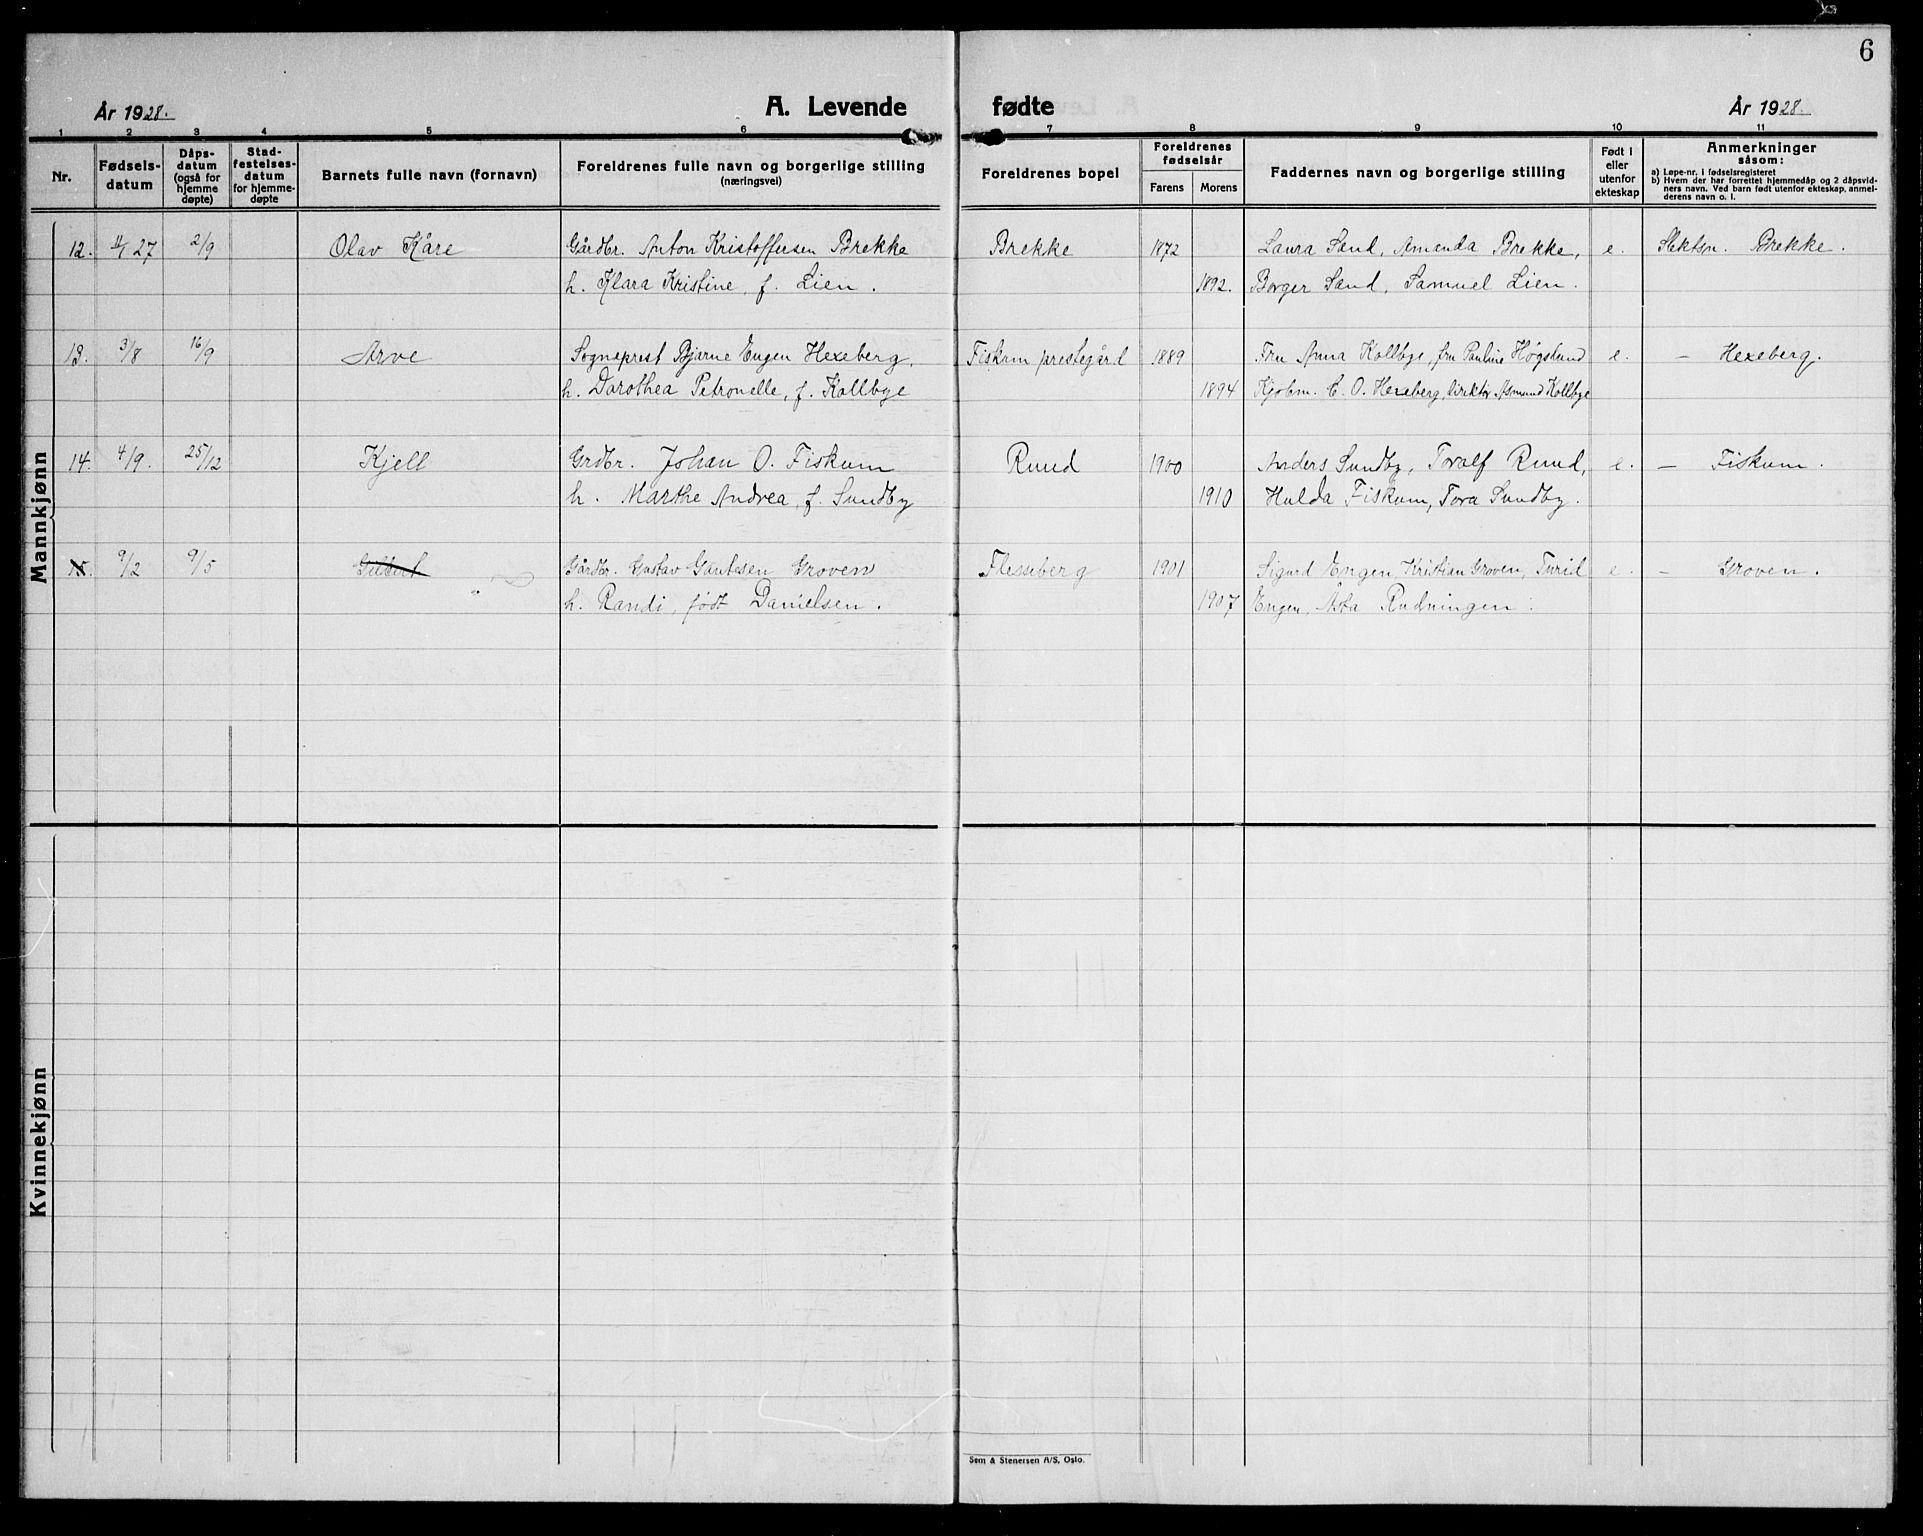 6
År 1928.
A. Levende fødte
År 1928.
1 2 3 4 5 6 7 8 9 10 11
Nr.
Fødselsdatum
Dåpsdatum (også for hjemmedøpte)
Stadfestelsesdatum for hjemmedøpte
Barnets fulle navn (fornavn)
Foreldrenes fulle navn og borgerlige stilling
(næringsvei)
Foreldrenes bopel
Foreldrenes fødselsår
Farens Morens
Faddernes navn og borgerlige stilling
Født i eller utenfor ekteskap
Anmerkninger
såsom:
a) Løpe-nr. i fødselsregisteret
b) Hvem der har forrettet hjemmedåp og 2 dåpsvidners navn. Ved barn født utenfor ekteskap, anmelderens navn o. l.
Mannkjønn
12. 11/27 2/9 Olav Kåre Gårdbr. Anton Kristoffersen Brekke Brekke 1872 Laura Sand, Amanda Brekke, e. Slektsn. Brekke.
h. Klara Kristine, f. Lien. 1892. Borger Sand, Samuel Lien.
13. 3/8 16/9 Arve Sogneprest Bjarne Engen Hexeberg, Fiskum prestegård 1889 Fru Anna Kollbye, fru Pauline Høgslund e. — Hexeberg.
h. Dorothea Petronelle, f. Kollbye 1894 Kjøbm. C. O. Hexeberg, direktør Asmund Kollbye
14. 4/9. 25/12 Kjell Grdbr. Johan O. Fiskum Ruud 1900 Anders Sundby, Toralf Ruud, e. — Fiskum.
h. Marthe Andrea, f. Sundby 1910 Hulda Fiskum, Tora Sundby.
15. 9/2 9/5 Gårdbr. Gustav Gautesen Groven Flesseberg 1901 Sigurd Engen, Kristian Groven, Turid e. — Groven.
h. Randi, født Danielsen. 1907 Engen, Asta Rudningen.
Kvinnekjønn
Sem & Stenersen A/S, Oslo.